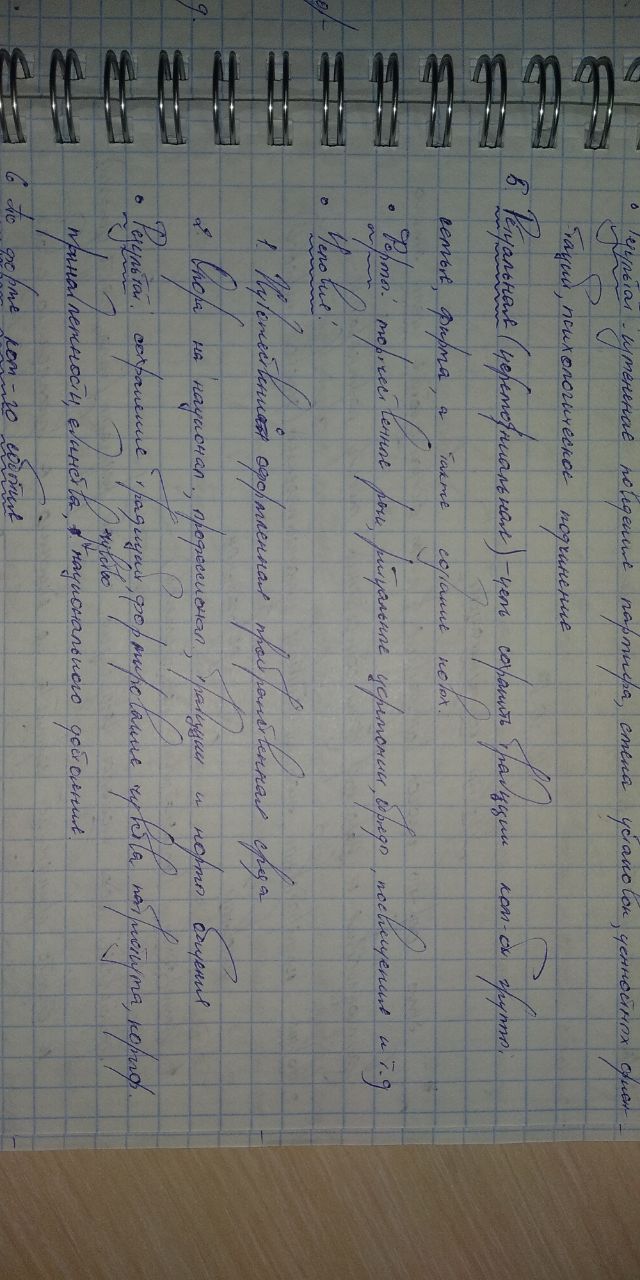 • Результат - изменение поведения партнера, смена установок, ценностных ориен-
таций, психологическое подчинение
5. Ритуальная (церемониальная) - цель сохранить традиции кол-ва группы,
семья, фирма, а также создание новых.
• Формы: торжественные речи, ритуальные церемонии, обряды, посвящения и т.д
• Условия:
1 Художественно оформленная пространственная среда
2. Опора на национал., профессионал., традиции и нормы общения
• Результат: сохранение традиций, формирование чувства патриотизма, корпор.
чувство
принадлежности, единства, национального достояния.
6 По форме кол-го общения